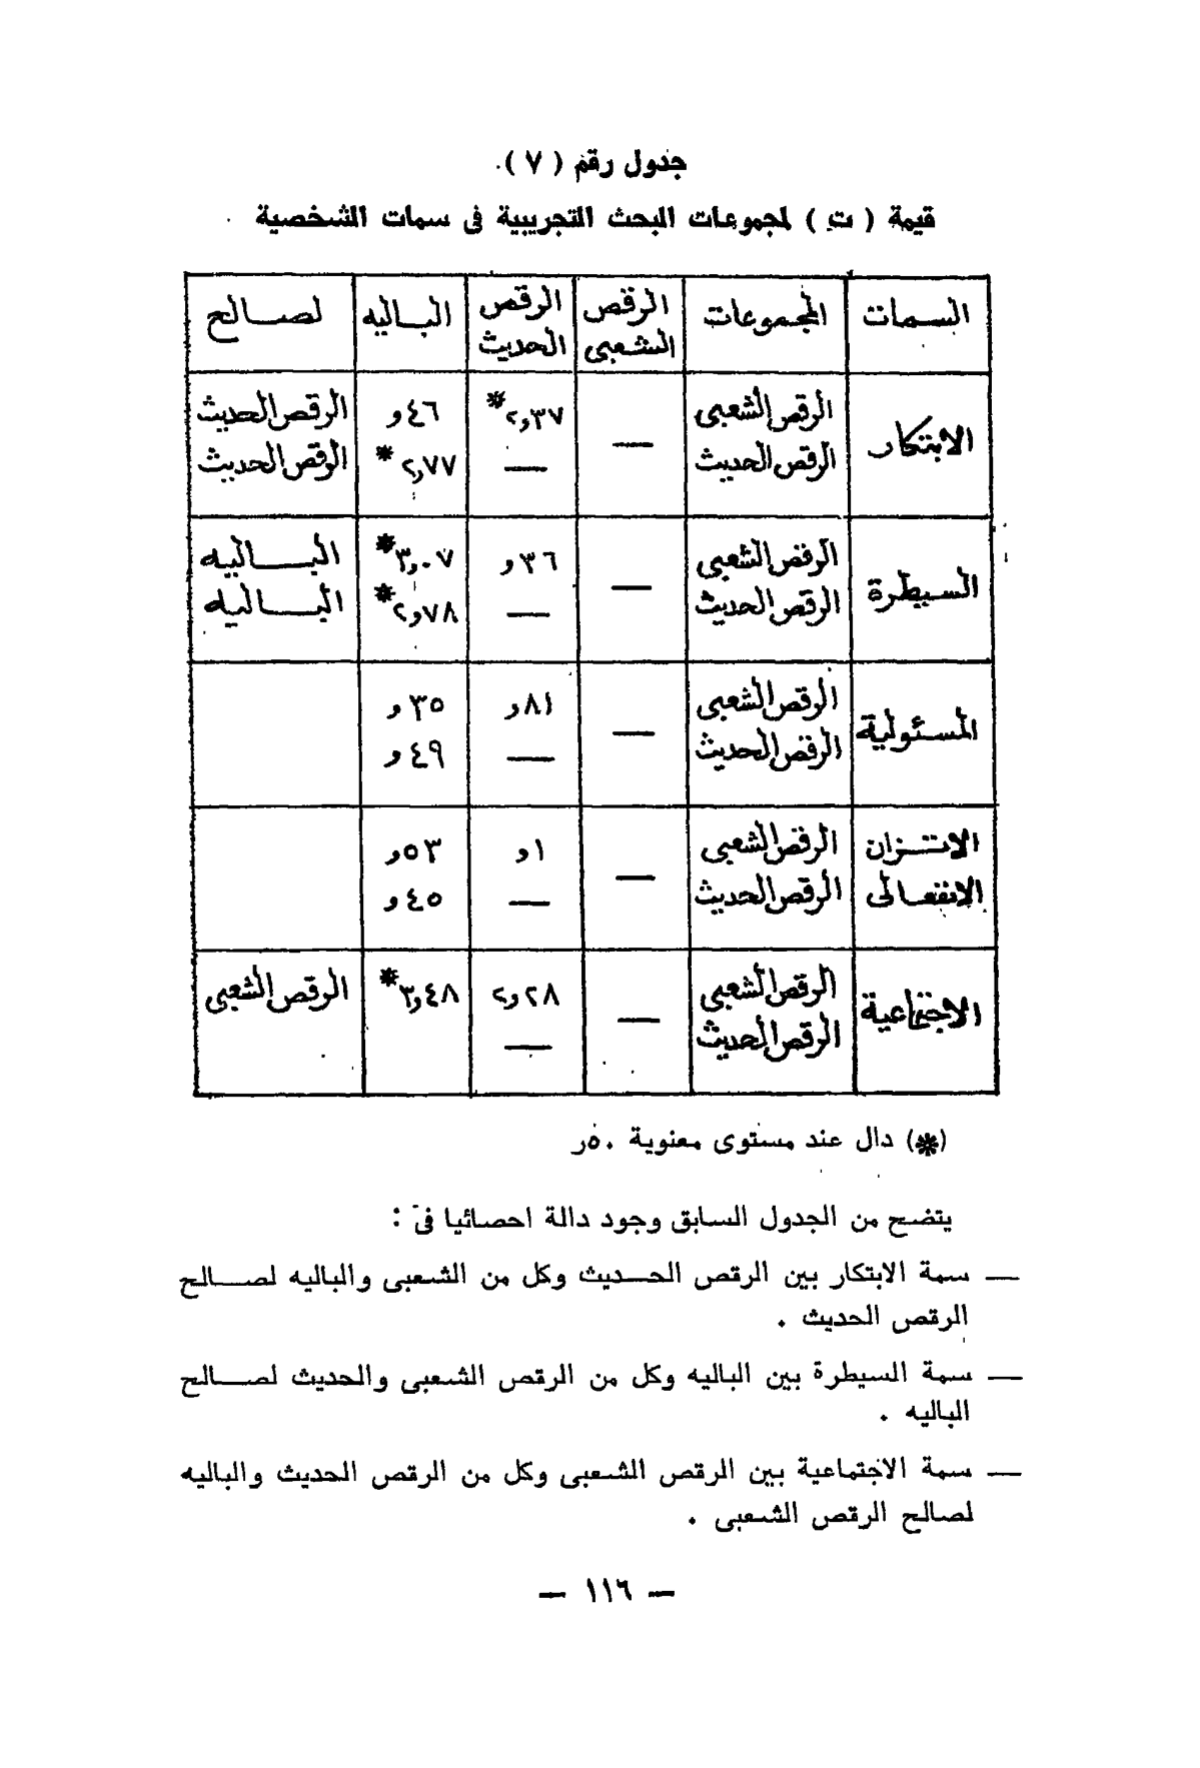 جدول رقم ( ٧ )
قيمة ( ت ) لمجموعات البحث التجريبية فى سمات الشخصية
السمات المجموعات الرقص الشعبى الرقص الحديث الباليه لصالح
الابتكار الرقص الشعبى — ٢٫٣٧* ٤٦و الرقص الحديث
الرقص الحديث — ٢٫٧٧* الرقص الحديث
السيطرة الرقص الشعبى — ٣٦و ٣٫٠٧* الباليه
الرقص الحديث — ٢٫٧٨* الباليه
المسئولية الرقص الشعبى — ٨١و ٣٥و
الرقص الحديث — ٤٩و
الاتزان الانفعالى الرقص الشعبى — ١و ٥٣و
الرقص الحديث — ٤٥و
الاجتماعية الرقص الشعبى — ٢٫٢٨ ٣٫٤٨* الرقص الشعبى
الرقص الحديث —
(*) دال عند مستوى معنوية ٠٥ر
يتضح من الجدول السابق وجود دالة احصائيا فى :
— سمة الابتكار بين الرقص الحديث وكل من الشعبى والباليه لصالح
الرقص الحديث .
— سمة السيطرة بين الباليه وكل من الرقص الشعبى والحديث لصالح
الباليه .
— سمة الاجتماعية بين الرقص الشعبى وكل من الرقص الحديث والباليه
لصالح الرقص الشعبى .
— ١١٦ —